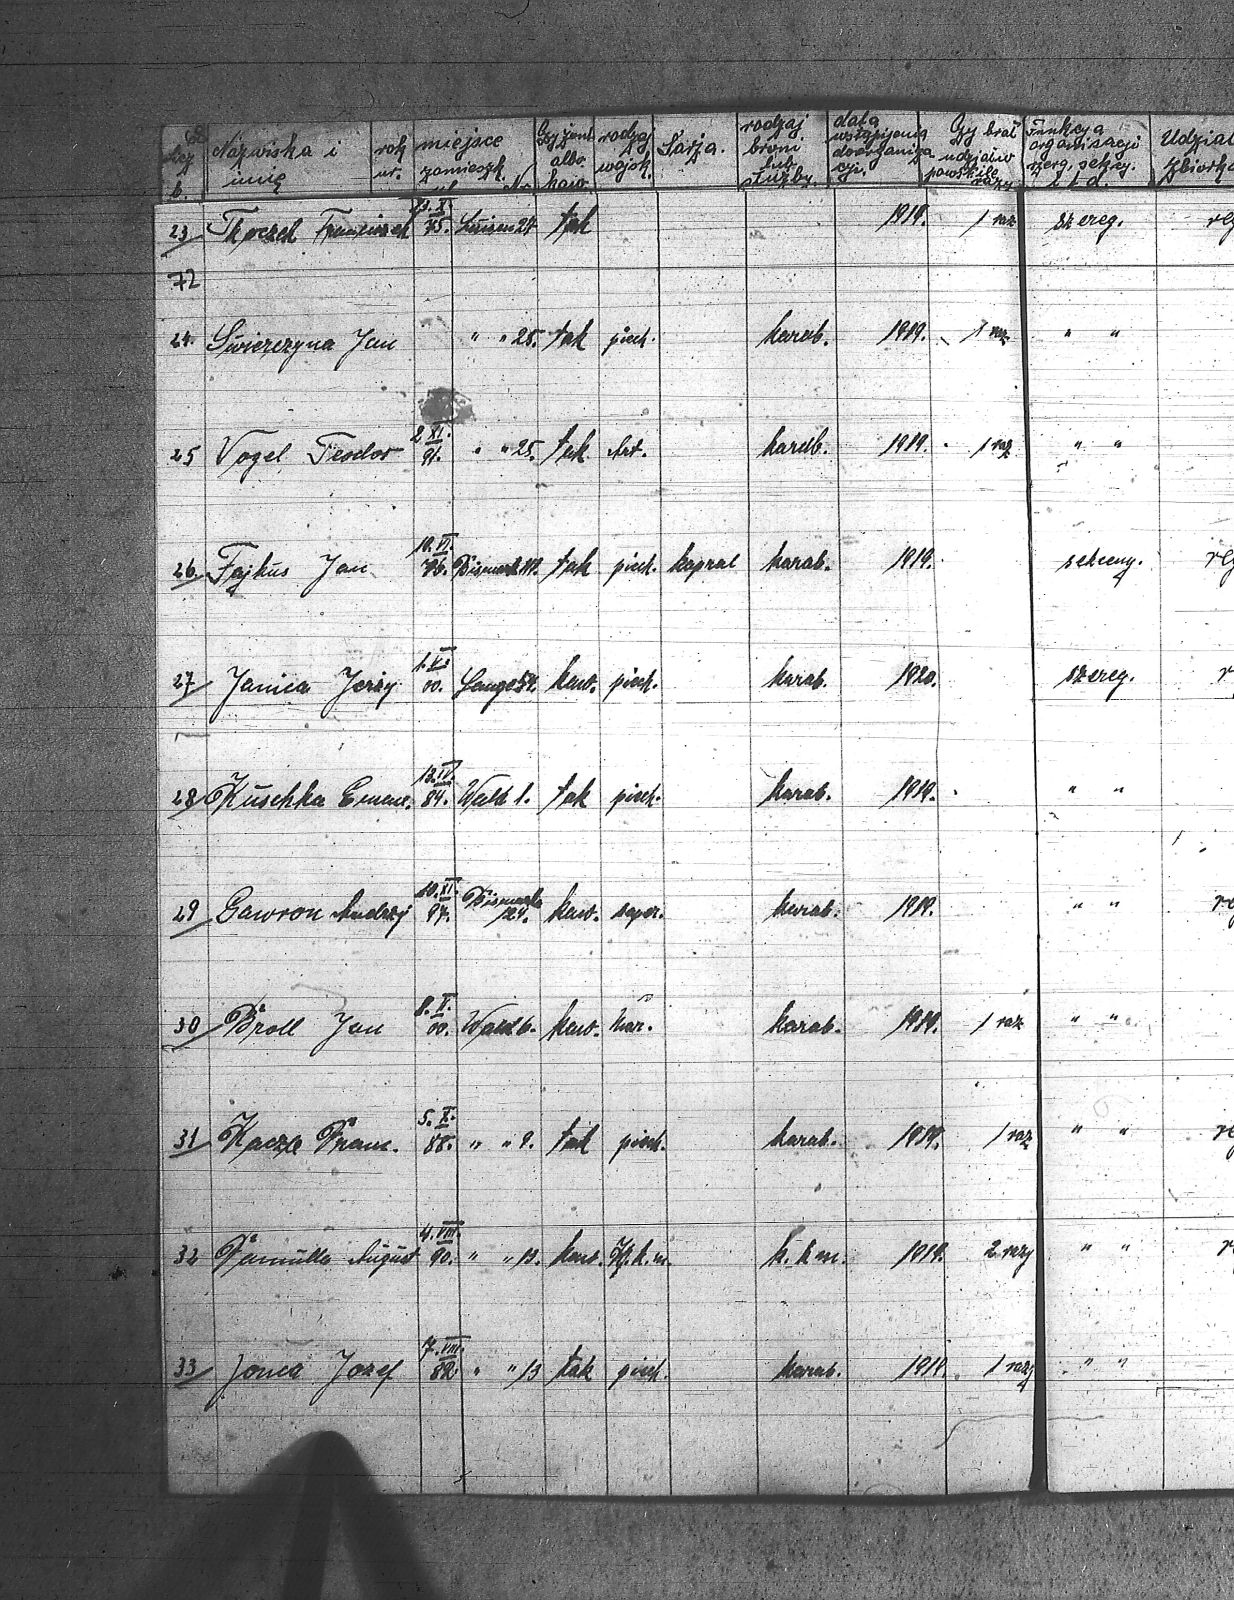 Nazwiska i imię rok ur. miejsce zamieszk. Czy żon. albo kaw. rodzaj wojsk. Sarża. rodzaj broni lub służby. data wstąpienia do organiza cji. Czy brał udział w powst. ile razy Funkcja organisacji szereg. sekcy. i t. d. Udział zbiórka
23 75. Luisen 24 tak 1919. 1 raz szereg.
72
24. Świerczyna Jan " " 25. tak piech. karab. 1919. 1 raz " "
25 Vogel Teodor 2.XI. 91. " " 25. tak Art. karab. 1919. 1 raz " "
26 Fajkus Jan 10.VI. 76. tak piech. kapral karab. 1919. sekcyny.
27 Janica Jerzy 1.V. 00. Lange 54. kaw. piech. karab. 1920. szereg.
28 Kuschka 13.IV. 84. Wald 1. tak piech. karab. 1919. " "
29 Gawron Andrzej 10.XI. 97. Bismarck 124. kaw. saper. karab. 1919. " "
30 Broll Jan 8.V. 00. Wald 6. kaw. mar. karab. 1919. 1 raz " "
31 Kaczle Franc. 5.X. 88. " " 9. tak piech. karab. 1919. 1 raz " "
32 Pamulla August 4.VIII. 90. " " 13. kaw. k. k m. 1919. 2 razy " "
33 Jonca Jozef 7.VIII. 82 " " 13 tak piech. karab. 1919. 1 razy " "